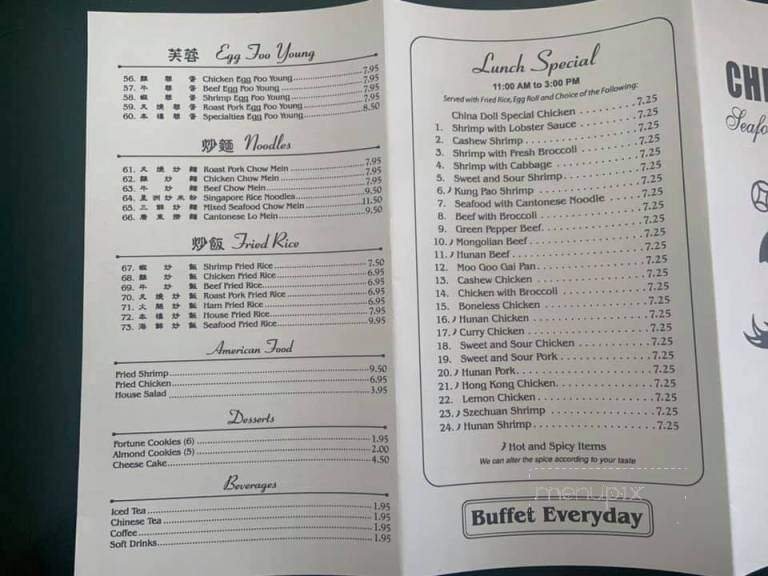 芙蓉 Egg Foo Young
56. 雞 蓉 蛋 Chicken Egg Foo Young 7.95
57. 牛 蓉 蛋 Beef Egg Foo Young 7.95
58. 蝦 蓉 蛋 Shrimp Egg Foo Young 7.95
59. 叉 燒 蓉 蛋 Roast Pork Egg Foo Young 7.95
60. 本 樓 蓉 蛋 Specialties Egg Foo Young 8.50
炒麵 Noodles
61. 叉 燒 炒 麵 Roast Pork Chow Mein 7.95
62. 雞 炒 麵 Chicken Chow Mein 7.95
63. 牛 炒 麵 Beef Chow Mein 7.95
64. 星 洲 炒 米 粉 Singapore Rice Noodles 9.50
65. 三 鮮 炒 麵 Mixed Seafood Chow Mein 11.50
66. 廣 東 撈 麵 Cantonese Lo Mein 9.50
炒飯 Fried Rice
67. 蝦 炒 飯 Shrimp Fried Rice 7.50
68. 雞 炒 飯 Chicken Fried Rice 6.95
69. 牛 炒 飯 Beef Fried Rice 6.95
70. 叉 燒 炒 飯 Roast Pork Fried Rice 6.95
71. 火 腿 炒 飯 Ham Fried Rice 6.95
72. 本 樓 炒 飯 House Fried Rice 7.95
73. 海 鮮 炒 飯 Seafood Fried Rice 9.95
American Food
Fried Shrimp 9.50
Fried Chicken 6.95
House Salad 3.95
Desserts
Fortune Cookies (6) 1.95
Almond Cookies (5) 2.00
Cheese Cake 4.50
Beverages
Iced Tea 1.95
Chinese Tea 1.95
Coffee 1.95
Soft Drinks 1.95
Lunch Special
11:00 AM to 3:00 PM
Served with Fried Rice, Egg Roll and Choice of the Following:
China Doll Special Chicken 7.25
1. Shrimp with Lobster Sauce 7.25
2. Cashew Shrimp 7.25
3. Shrimp with Fresh Broccoli 7.25
4. Shrimp with Cabbage 7.25
5. Sweet and Sour Shrimp 7.25
6. Kung Pao Shrimp 7.25
7. Seafood with Cantonese Noodle 7.25
8. Beef with Broccoli 7.25
9. Green Pepper Beef 7.25
10. Mongolian Beef 7.25
11. Hunan Beef 7.25
12. Moo Goo Gai Pan 7.25
13. Cashew Chicken 7.25
14. Chicken with Broccoli 7.25
15. Boneless Chicken 7.25
16. Hunan Chicken 7.25
17. Curry Chicken 7.25
18. Sweet and Sour Chicken 7.25
19. Sweet and Sour Pork 7.25
20. Hunan Pork 7.25
21. Hong Kong Chicken 7.25
22. Lemon Chicken 7.25
23. Szechuan Shrimp 7.25
24. Hunan Shrimp 7.25
Hot and Spicy Items
We can alter the spice according to your taste
menupix
Buffet Everyday